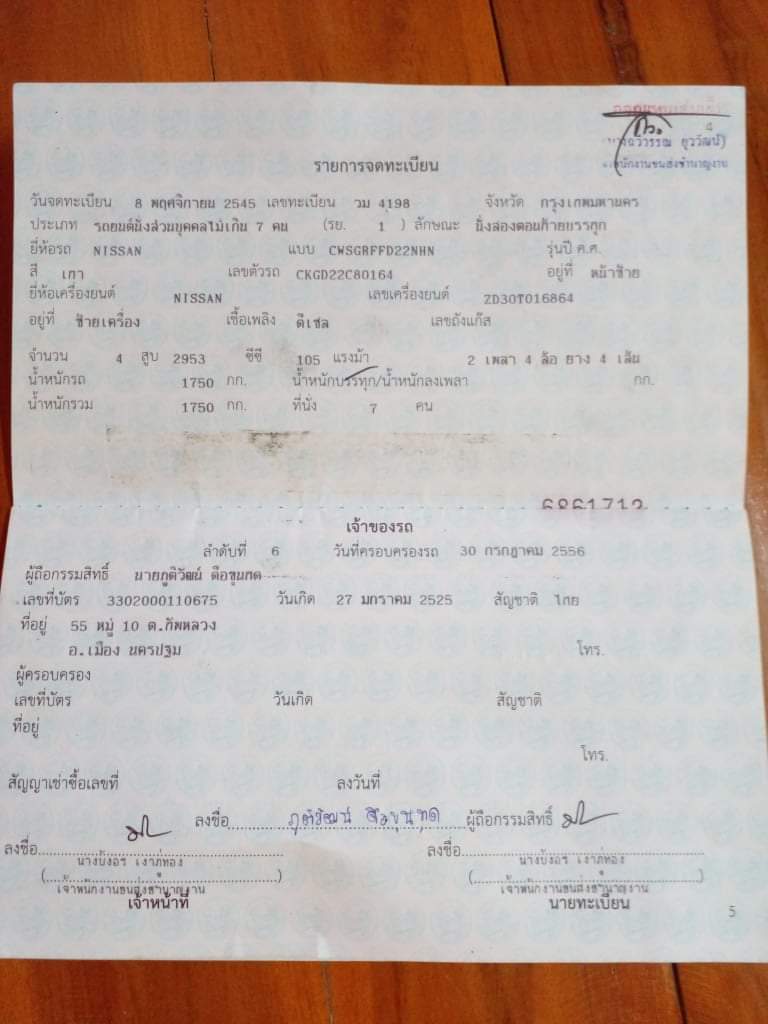 4
ยุววัฒน์)
รายการจดทะเบียน
วันจดทะเบียน 8 พฤศจิกายน 2545 เลขทะเบียน วม 4198 จังหวัด กรุงเทพมหานคร
ประเภท รถยนต์นั่งส่วนบุคคลไม่เกิน 7 คน (รย. 1 ) ลักษณะ นั่งสองตอนท้ายบรรทุก
ยี่ห้อรถ NISSAN แบบ CWSGRFFD22NHN รุ่นปี ค.ศ.
สี เทา เลขตัวรถ CKGD22C80164 อยู่ที่ หน้าซ้าย
ยี่ห้อเครื่องยนต์ NISSAN เลขเครื่องยนต์ ZD30T016864
อยู่ที่ ซ้ายเครื่อง เชื้อเพลิง ดีเซล เลขถังแก๊ส
จำนวน 4 สูบ 2953 ซีซี 105 แรงม้า 2 เพลา 4 ล้อ ยาง 4 เส้น
น้ำหนักรถ 1750 กก. น้ำหนักบรรทุก/น้ำหนักลงเพลา กก.
น้ำหนักรวม 1750 กก. ที่นั่ง 7 คน
6861712
เจ้าของรถ
ลำดับที่ 6 วันที่ครอบครองรถ 30 กรกฎาคม 2556
ผู้ถือกรรมสิทธิ์ นายภูติวัฒน์ ถือขุนทด
เลขที่บัตร 3302000110675 วันเกิด 27 มกราคม 2525 สัญชาติ ไทย
ที่อยู่ 55 หมู่ 10 ต.ทัพหลวง
อ.เมือง นครปฐม โทร.
ผู้ครอบครอง
เลขที่บัตร วันเกิด สัญชาติ
ที่อยู่
โทร.
สัญญาเช่าซื้อเลขที่ ลงวันที่
ลงชื่อ ภูติวัฒน์ ถือขุนทด ผู้ถือกรรมสิทธิ์
ลงชื่อ ลงชื่อ
นางบังอร เงาภู่ทอง นางบังอร เงาภู่ทอง
เจ้าพนักงานขนส่งชำนาญงาน เจ้าพนักงานขนส่งชำนาญงาน
เจ้าหน้าที่ นายทะเบียน
5